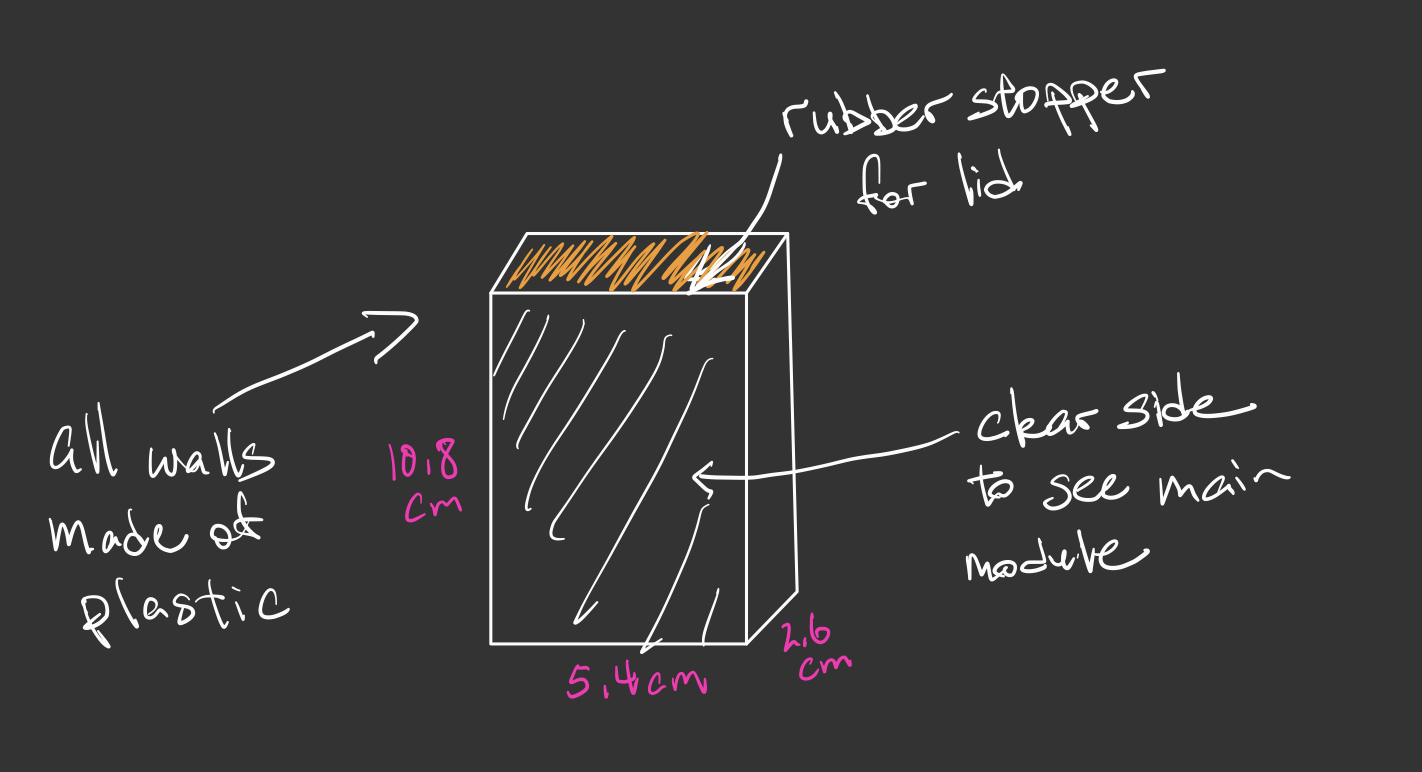 rubber stopper
for lid
all walls
made of
plastic
10.8
cm
clear side
to see main
module
2.6
cm
5.4 cm